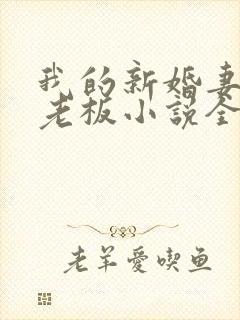 我的新婚妻
老板小说全
老羊爱吃鱼